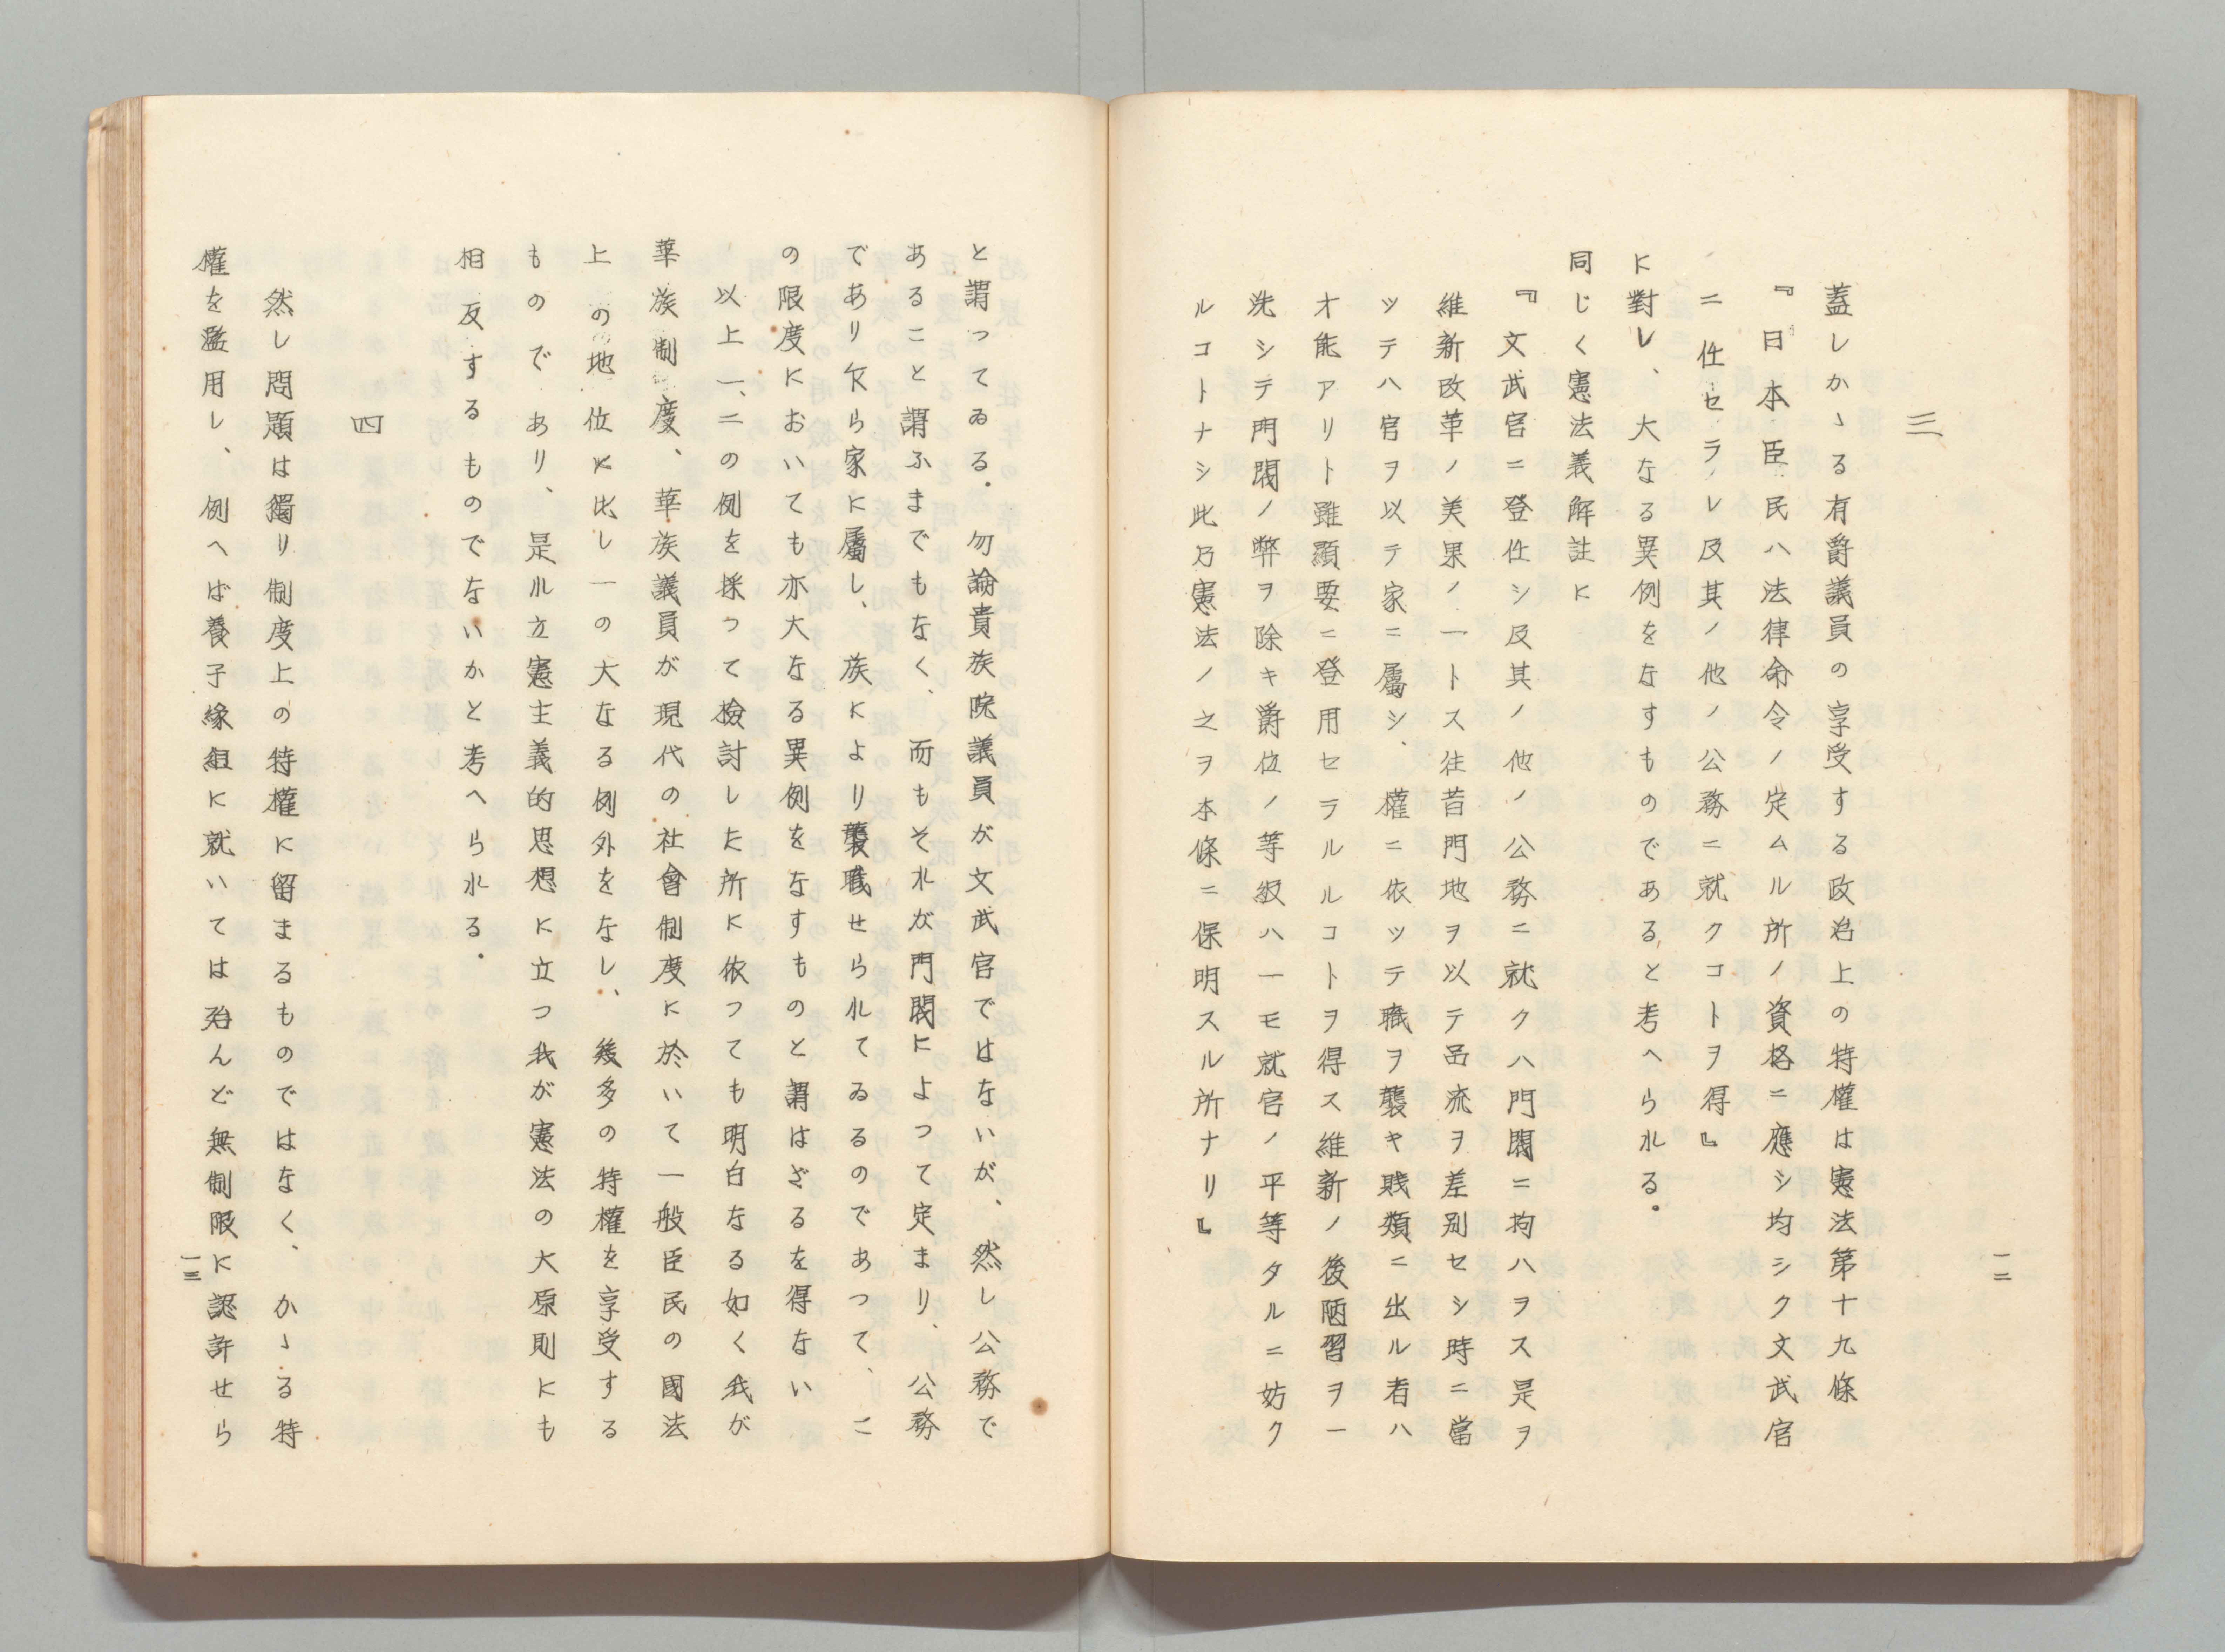 一二
三
蓋しかゝる有爵議員の享受する政治上の特權は憲法第十九條
『日本臣民ハ法律命令ノ定ムル所ノ資格ニ應シ均シク文武官
ニ任セラレ及其ノ他ノ公務ニ就クコトヲ得』
に對し、大なる異例をなすものであると考へられる。
同じく憲法義解註に
『文武官ニ登任シ及其ノ他ノ公務ニ就クハ門閥ニ拘ハラス是ヲ
維新改革ノ美果ノ一トス往昔門地ヲ以テ品流ヲ差別セシ時ニ當
ツテハ官ヲ以テ家ニ屬シ、權ニ依ツテ職ヲ襲キ賤類ニ出ル者ハ
才能アリト雖顯要ニ登用セラルルコトヲ得ス維新ノ後陋習ヲ一
洗シテ門閥ノ弊ヲ除キ爵位ノ等級ハ一モ就官ノ平等タルニ妨ク
ルコトナシ此乃憲法ノ之ヲ本條ニ保明スル所ナリ』
と謂つてゐる。勿論貴族院議員が文武官ではないが、然し公務で
あること謂ふまでもなく、而もそれが門閥によつて定まり、公務
であり乍ら家に屬し、族により襲職せられてゐるのであつて、こ
の限度においても亦大なる異例をなすものと謂はざるを得ない
以上一、二の例を採つて檢討した所に依つても明白なる如く我が
華族制度、華族議員が現代の社會制度に於いて一般臣民の國法
上の地位に比し一の大なる例外をなし、幾多の特權を享受する
ものであり、是れ立憲主義的思想に立つ我が憲法の大原則にも
相反するものでないかと考へられる。
四
然し問題は獨り制度上の特權に留まるものではなく、かゝる特
權を濫用し、例へば養子緣組に就いては殆んど無制限に認許せら
一三